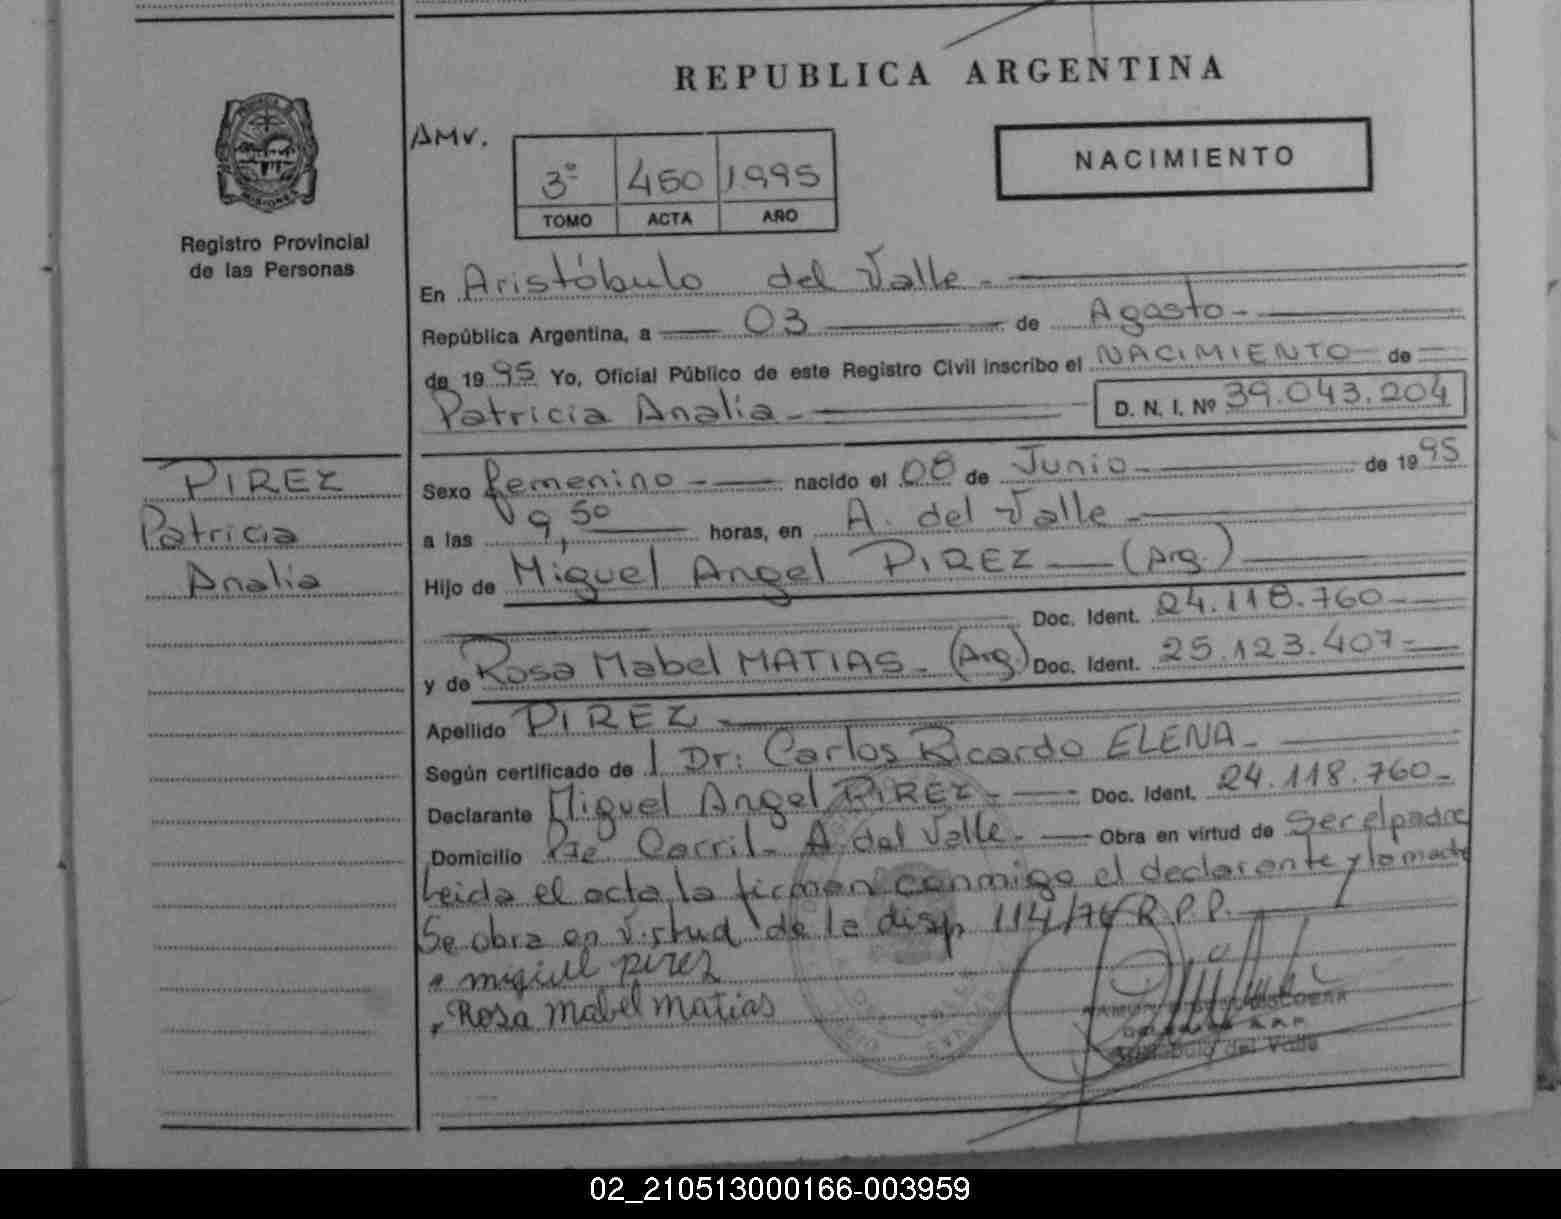 REPUBLICA ARGENTINA
AMV.
3º 450 1995
TOMO ACTA AÑO
NACIMIENTO
Registro Provincial
de las Personas
En Aristóbulo del Valle -
República Argentina, a 03 de Agosto -
de 1995 Yo, Oficial Público de este Registro Civil inscribo el NACIMIENTO de
Patricia Analía - D. N. I. Nº 39.043.204
PIREZ
Patricia
Analía
Sexo femenino - nacido el 08 de Junio - de 1995
a las 9,50 horas, en A. del Valle -
Hijo de Miguel Angel PIREZ - (Arg.)
Doc. Ident. 24.118.760 -
y de Rosa Mabel MATIAS - (Arg.) Doc. Ident. 25.123.407 -
Apellido PIREZ -
Según certificado de Dr: Carlos Ricardo ELENA -
Declarante Miguel Angel PIREZ - Doc. Ident. 24.118.760 -
Domicilio Pje Carril - A. del Valle - Obra en virtud de ser el padre
Leida el acta, la firman conmigo el declarante y la madre
Se obra en virtud de la disp 114/76 R.P.P.
miguel pirez
Rosa mabel matias
ESCOBAR
Aristobulo del Valle
02_210513000166-003959